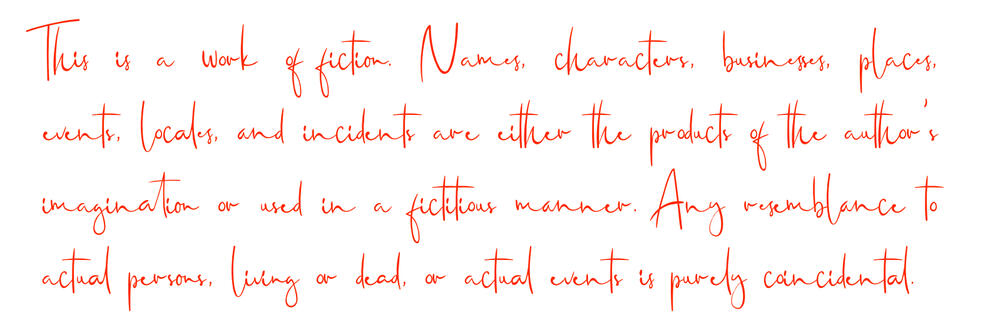 This is a work of fiction. Names, characters, businesses, places,
events, locales, and incidents are either the products of the author's
imagination or used in a fictitious manner. Any resemblance to
actual persons, living or dead, or actual events is purely coincidental.